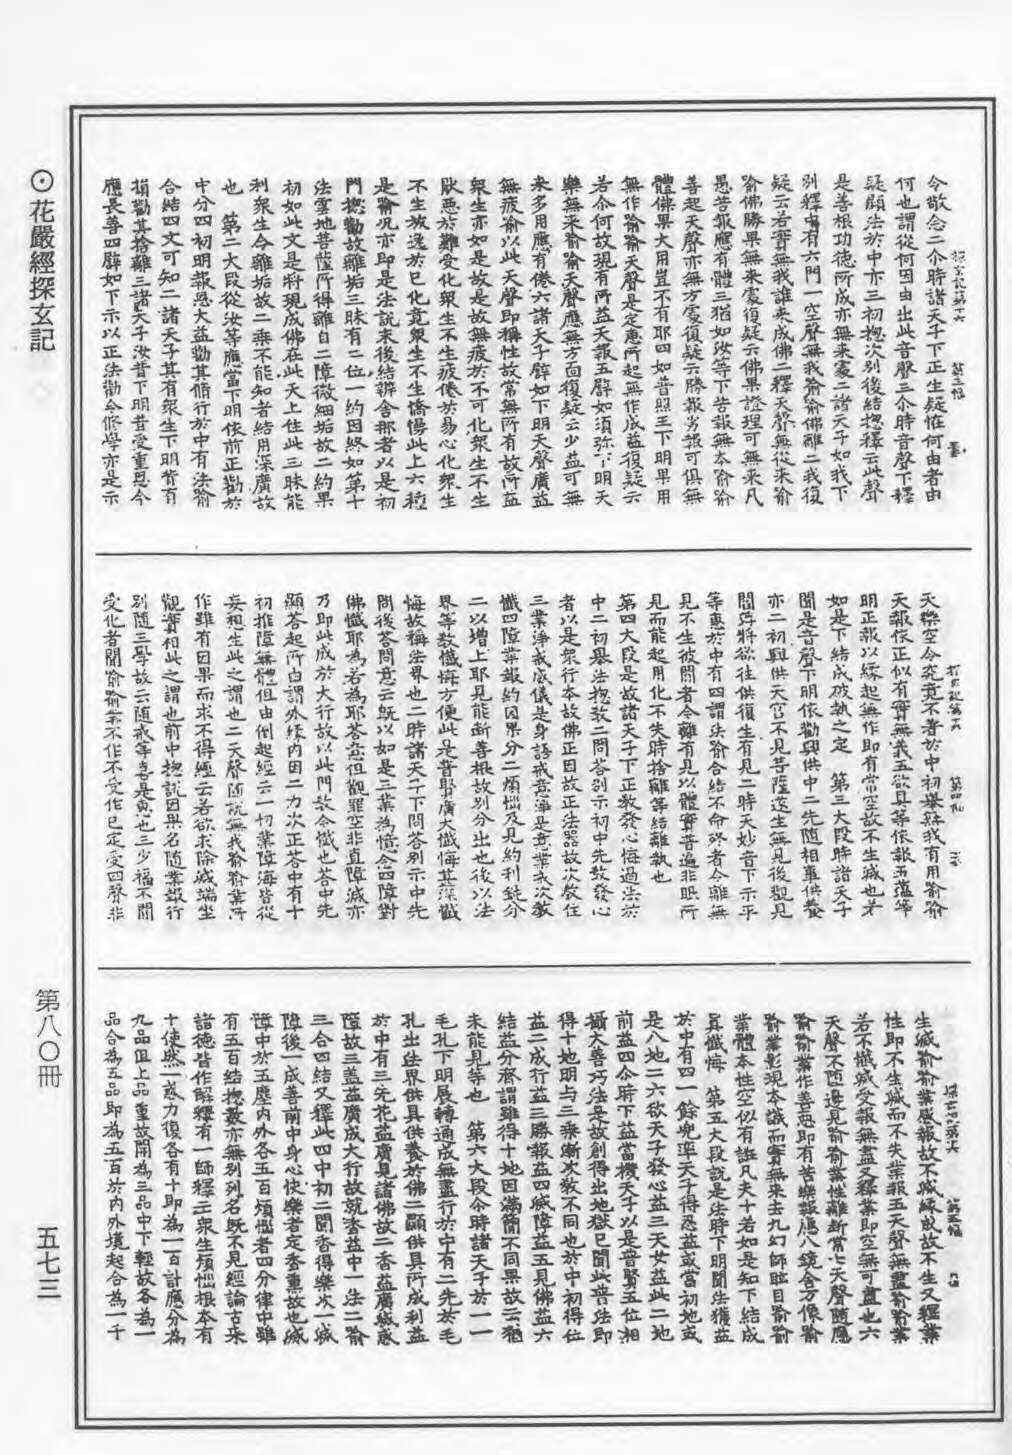 ⊙花嚴經探玄記
第八〇冊
五七三
探玄記第十六
第三幅
畫
令敬念二尒時諸天子下正生疑恠何由者由
何也謂從何因由出此音聲三尒時音聲下釋
疑顯法於中亦三初揔次別後結揔釋云此聲
是善根功德所成亦無来處二諸天子如我下
別釋中有六門一空聲無我喻喻佛離二我復
疑云若實無我誰来成佛二釋天聲無從来喻
喻佛勝果無来處復疑云佛果證理可無来凡
愚苦報應有體三猶如汝等下苦報無本喻喻
善起天聲亦無方處復疑云勝報劣報可俱無
體佛果大用豈不有耶四如普照王下明果用
無作喻喻天聲是定惠所起無作成益復疑云
若尒何故現有所益天報五譬如須弥下明天
樂無来喻喻天聲應無方面復疑云少益可無
来多用應有倦六諸天子譬如下明天聲廣益
無疲喻以此天聲即稱性故常無所有故所益
衆生亦如是故是故無疲於不可化衆生不生
猒惡於難受化衆生不生疲倦於易心化衆生
不生放逸於已化竟衆生不生憍慢此上六種
是喻況亦即是法説来後結辨舍那者以是初
門揔勸故離垢三昧有二位一約因終如第十
法雲地菩薩所得離自二障微細垢故二約果
初如此文是將現成佛在此天上住此三昧能
利衆生令離垢故二乘不能知者結用深廣故
也　第二大段從汝等應當下明依前正勸於
中分四初明報恩大益勸其脩行於中有法喻
合結四文可知二諸天子其有衆生下明背有
損勸其捨離三諸天子汝昔下明昔受重恩今
應長善四譬如下示以正法勸令修學亦是示
第四幅
天樂空令究竟不著於中初舉譬我有用喻喻
天報依正似有實無義五欲具等依報五蔭等
明正報以緣起無作即有常空故不生滅也第
如是下結成破執之定　第三大段時諸天子
聞是音聲下明依勸興供中二先隨相事供養
亦二初興供天宮不見菩薩遂生無見後覲見
閻浮將欲往供復生有見二時天妙音下示平
等惠於中有四謂法喻合結不命終者令離無
見不生彼閻者令離有見以體實普遍非眼所
見而能起用化不失時捨離等結離執也
第四大段是故諸天子下正教發心悔過法於
中二初舉法揔教二問答別示初中先教發心
者以是衆行本故佛正因故正法器故次教住
三業淨戒威儀是身語戒意淨是意業戒次教
懺四障業報約因果分二煩惱及見約利鈍分
二以增上耶見能斷善根故別分出也後以法
界等數懺悔方便此是普賢廣大懺悔甚深懺
悔故稱法界也二時諸天子下問答別示中先
問後荅問意云旣以如是三業為憶念四障對
佛懺耶為若為耶荅意但觀罪空非直障滅亦
乃即此成於大行故以此門教令懺也荅中先
顯荅起所白謂外緣内因二力次正荅中有十
初推障無體但由倒起經云一切業障海皆從
妄想生此之謂也二天聲隨説無我喻喻業所
作雖有因果而求不得經云若欲求除滅端坐
觀實相此之謂也前中揔説因果名隨業報行
別隨三學故云隨戒等喜是恵也三少福不聞
受化者聞喻喻業不作不受作已定受四聲非
第五幅
生滅喻喻業感報故不滅緣故故不生又釋業
性即不生滅而不失業報五天聲無盡喻喻業
若不懺滅受報無盡又釋業即空無可盡也六
天聲不隨邊見喻喻業性離斷常七天聲隨應
喻喻業作善惡即有苦樂報應八鏡含方像喻
喻業影現本識而實無来去九幻師眩目喻喻
業體本性空似有誑凡夫十若如是知下結成
眞懺悔　第五大段説是法時下明聞法獲益
於中有四一餘兜率天子得忍益或當初地或
是八地二六欲天子發心益三天女益此二地
前益四尒時下益當機天子以是普賢五位相
攝大善巧法是故創得出地獄已聞此普法即
得十地明与三乘漸次教不同也於中初得位
益二成行益三勝報益四滅障益五見佛益六
結益分齊謂雖得十地因滿簡不同果故云猶
未能見等也　第六大段令時諸天子於一一
毛孔下明展轉通成無盡行於中有二先於毛
孔出法界供具供養於佛二顯供具所成利益
於中有三先花益廣見諸佛故二香益廣滅惑
障故三蓋益廣成大行故就香益中一法二喻
三合四結又釋此四中初二聞香得樂次一滅
障後一成善前中身心快樂者定香熏故也滅
障中於五塵内外各五百煩惱者四分律中雖
有五百結揔數亦無別列名旣不見經論古来
諸德皆作解釋有一師釋云衆生煩惱根本有
十使然一惑力復各有十即為一百計應分為
九品但上品重故開為三品中下輕故各為一
品合為五品即為五百於内外境起合為一千